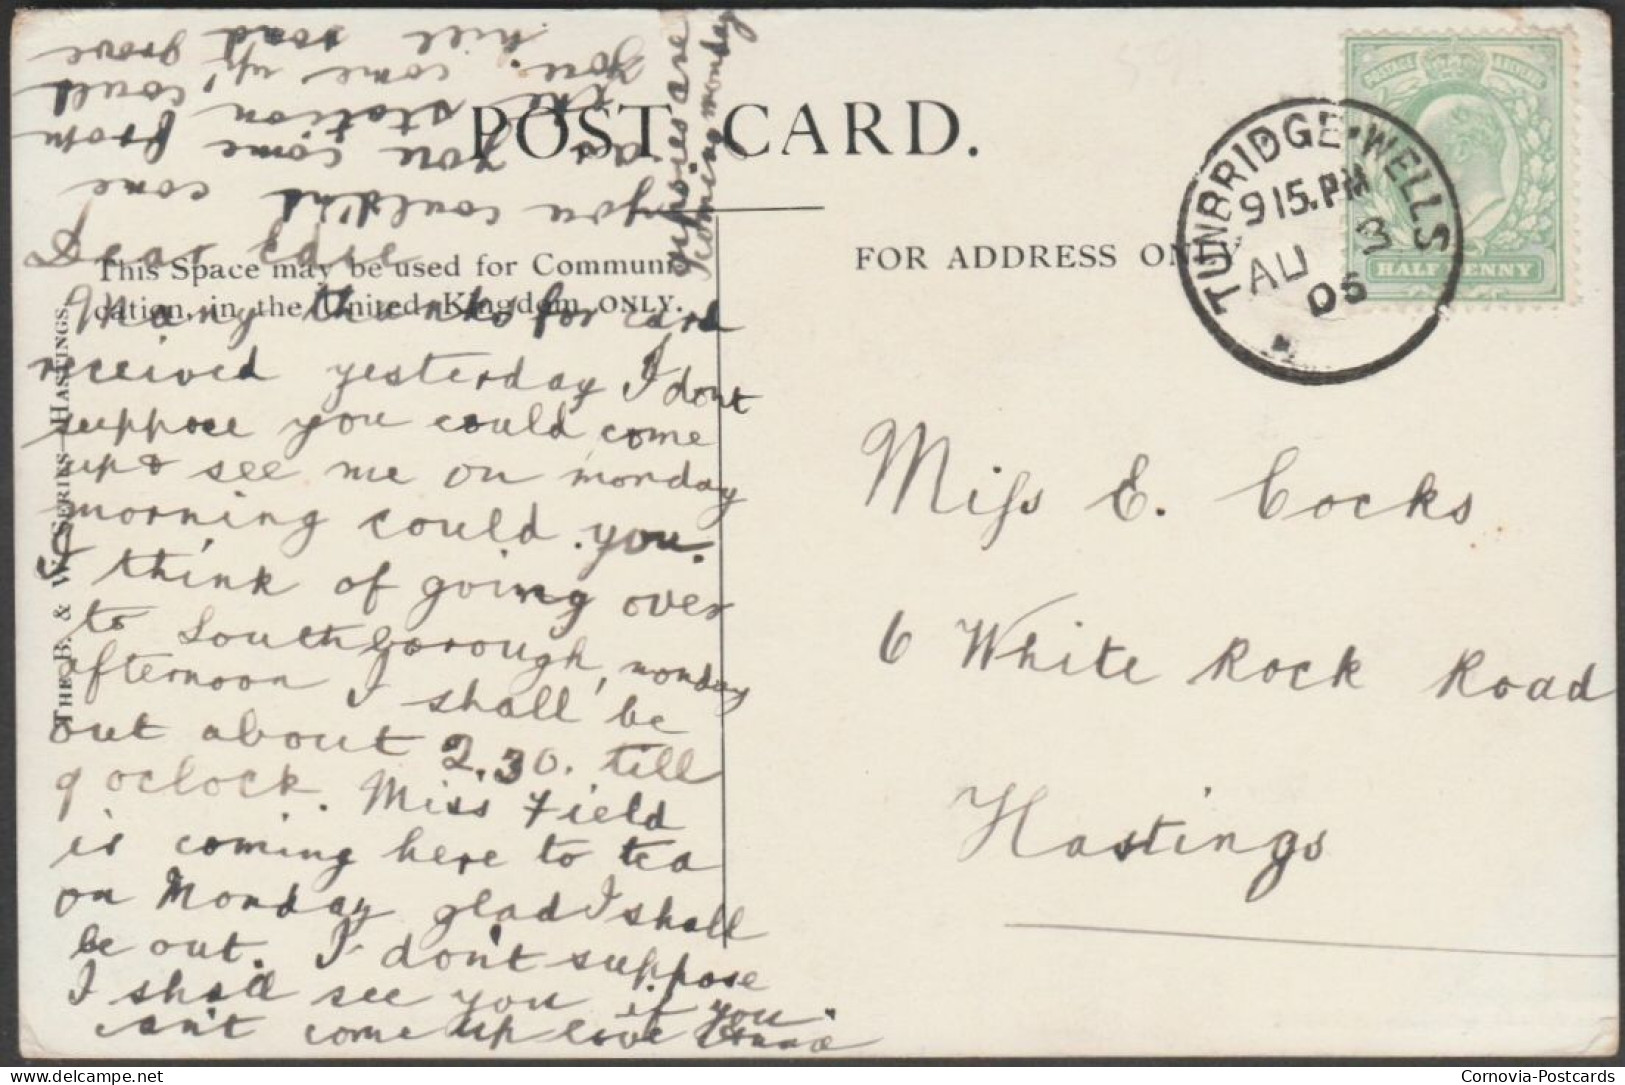 POST CARD.
This Space may be used for Communi-
cation, in the United Kingdom ONLY.
FOR ADDRESS ONLY
THE B. & W. SERIES—HASTINGS.
POSTAGE & REVENUE
HALF PENNY
TUNBRIDGE·WELLS
9 15. PM
AU 3
05
Miss E. Cocks
6 White Rock Road
Hastings
Dear Edie
Many thanks for card
received yesterday I dont
suppose you could come
up & see me on monday
morning could you.
I think of going over
to Southborough, monday
afternoon I shall be
out about 2.30. till
9 oclock. Miss Field
is coming here to tea
on Monday glad I shall
be out. I don't suppose
I shall see you if you
can't come up love
you could'nt come
as you come from
the station could
you. come up' grove
hill road
gipsies are
coming monday
Cornovia-Postcards
delcampe.net